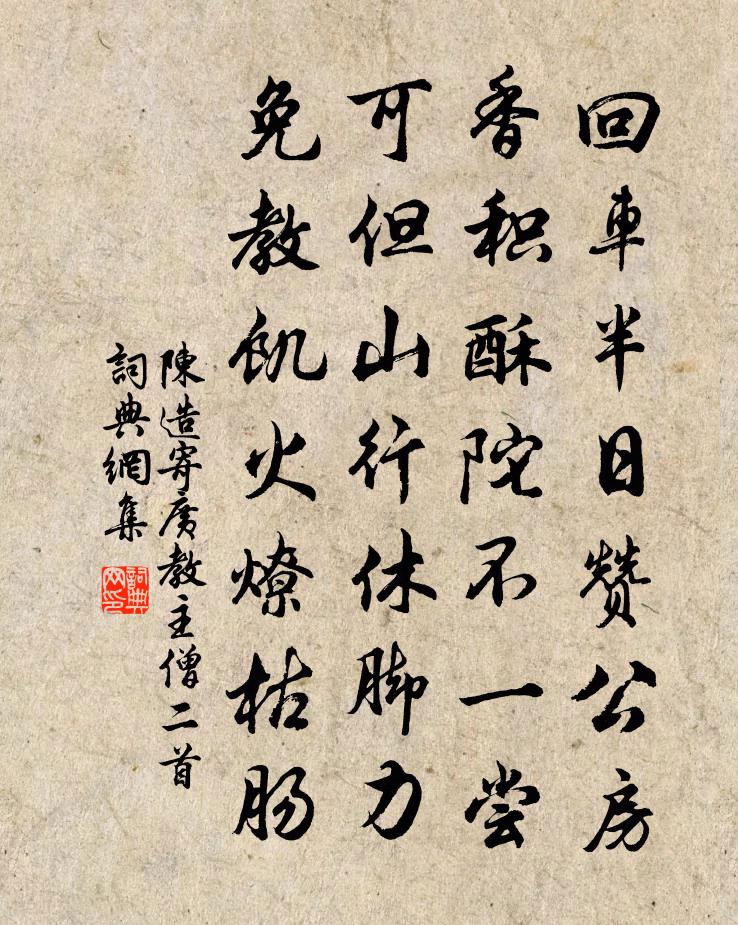 回車半日赞公房
香积酥陀不一尝
可但山行休脚力
免教飢火燎枯肠
陳造寄廣教主僧二首
詞典網集
詞典網印